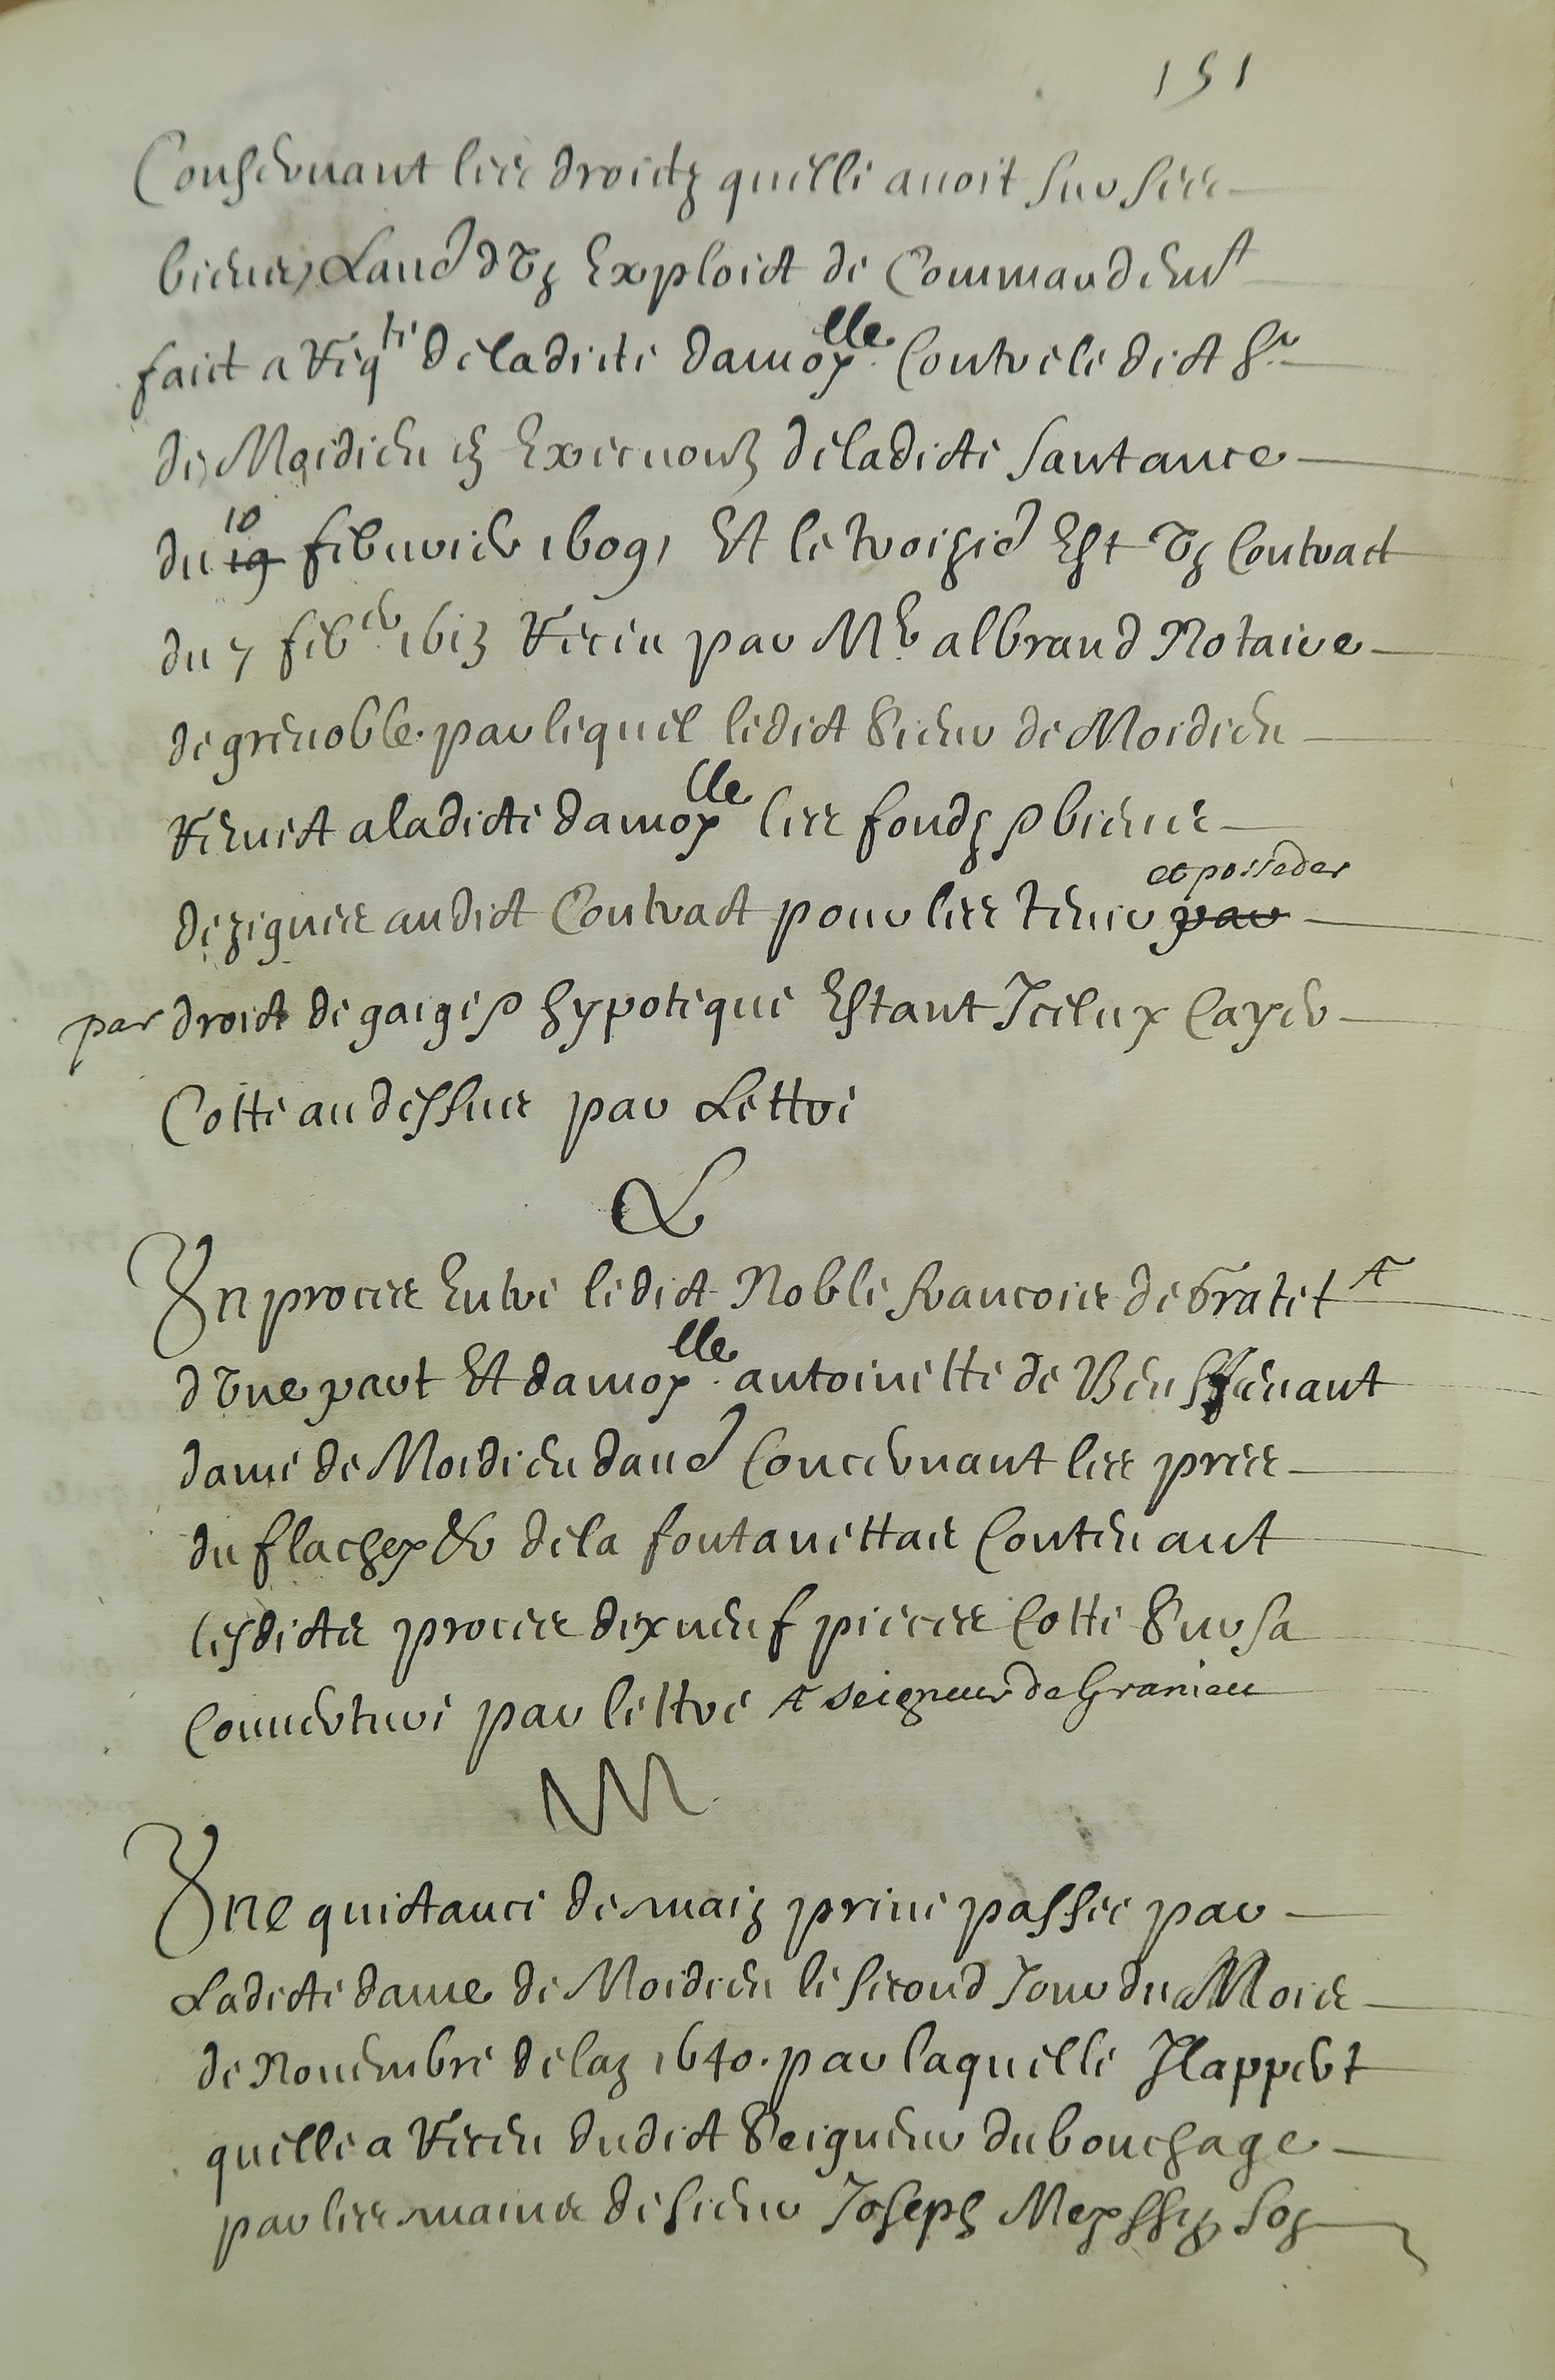 151
Conservant les droictz quelle avoit sur ses
biens, Laud dung Exploict de Commandemt
faict a Reqte de ladicte damoylle Contre le dict Sr
de Moidieu en Execuon de ladicte santance
du 19 10 febvrier 1609, Et le troisie Est Ung Contract
du 7 feber 1613 Receu par Me albrand Notaire
de grenoble. par lequel ledict Sieur de Moidieu
Remet a ladicte damoylle les fonds & biens
dezignes audict Contract pour les tenir par et posseder
par droict de gaige & hypoteque Estant Iceluy Cayer
Cotte au dessus par Lettre
L
Vn proces Entre ledict Noble francois de Gratet +
dune part Et damoylle antoinette de
dame de Moidieu daue Concernant les pres
du flacheyer de la fontanettas Contenant
lesdictes proces dix neuf pieces Cotte Sur sa
Couverture par lettre + seigneur de Granieu
M
Vne quictance de main prive passee par
Ladicte dame de Moidieu le second Jour du Mois
de Novembre de lan 1640. par laquelle Il appert
quelle a Receu dudict Seigneur du bouchage
par les mains de sieur Joseph son